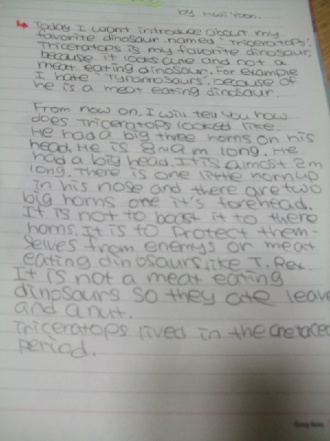 by Hwi Yoon.
Today I want introduce about my
favorite dinosaur named "Triceratops".
Triceratops is my favorite dinosaur,
because it looks cute and not a
meat eating dinosaur. For example
I hate "Tyrannosaurs", because of
he is a meat eating dinosaur.
From now on, I will tell you how
does Triceratops looked like.
He had a big three horns on his
head. He is 8~9 m long. He
had a big head. It is almost 2m
long. There is one little horn up
in his nose and there are two
big horns one it's forehead.
It is not to boast it to there
horns. It is to Protect them-
selves from enemys or meat
eating dinosaurs like T. Rex.
It is not a meat eating
dinosaurs so they ate leave
and a nut.
Triceratops lived in the cretaceo
Period.